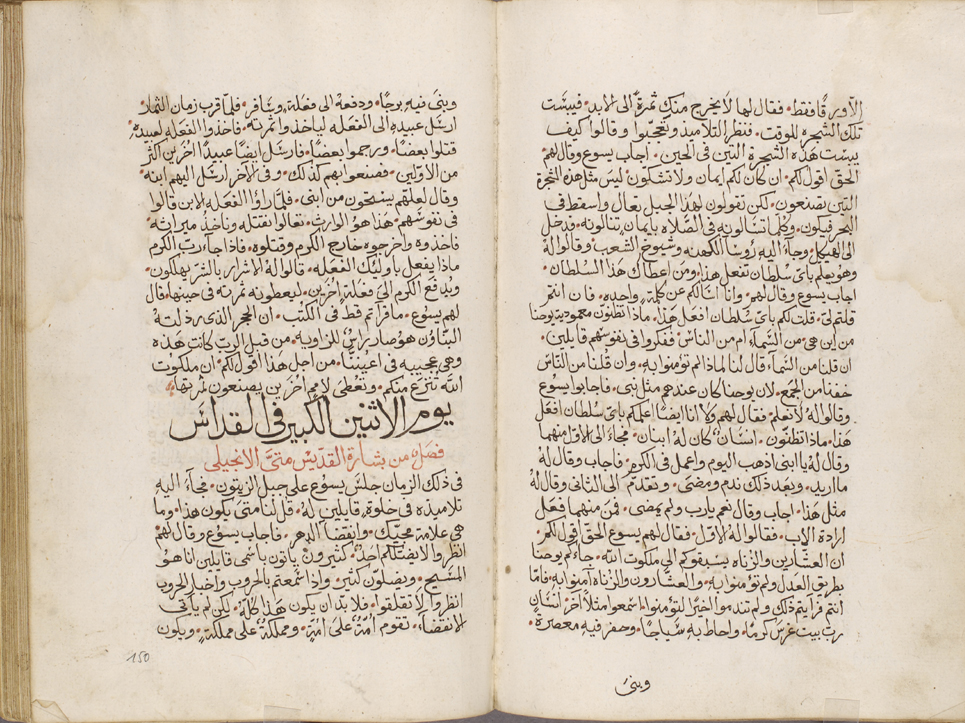 الاورق فقط. فقال لها لا يخرج منك ثمرة الى الابد. فيبست
تلك الشجره للوقت. فنظر التلاميذ وتعجبوا وقالوا كيف
يبست هذه الشجرة التين فى الحين. اجاب يسوع وقال لهم
الحق اقول لكم. ان كان لكم ايمان ولا تشكون. ليس مثل هذه الشجرة
التين تصنعون. لكن تقولون لهذا الجبل تعال واسقط فى
البحر فيكون. وكلما تسالونه فى الصلاه بايمان تنالونه. فدخل
الى الهيكل وجآء اليه رؤسا الكهنه وشيوخ الشعب. وقالوا له
وهو يعلم باى سلطان تفعل هذا. ومن اعطاك هذا السلطان.
اجاب يسوع وقال لهم. وانا اسالكم عن كلمة واحده. فان انتم
قلتم لى. قلت لكم باى سلطان افعل هذا. ماذا تظنون معمودية يوحنا
من اين هى من السمآء ام من الناس. ففكروا فى نفوسهم قايلين.
ان قلنا من السمآء قال لنا لماذا لم تؤمنوا به. وان قلنا من الناس
خفنا من الجمع. لان يوحنا كان عندهم مثل نبى. فاجابوا يسوع
وقالوا له لا نعلم. فقال لهم ولا انا ايضا اعلمكم باى سلطان افعل
هذا. ماذا تظنون. انسان كان له ابنان. فجآء الى الاول منهما
وقال له يا ابنى اذهب اليوم واعمل فى الكرم. فاجاب وقال له
ما اريد. وبعد ذلك ندم ومضى. وتقدم الى الثانى وقال له
مثل هذا. اجاب وقال نعم يارب ولم يمضى. فمن منهما فعل
ارادة الاب. فقالوا له الاول. فقال لهم يسوع الحق اقول لكم.
ان العشارين والزناه يسبقوكم الى ملكوت الله. جآءكم يوحنا
بطريق العدل ولم تؤمنوا به. والعشارون والزناه آمنوا به. فاما
انتم فرايتم ذلك ولم تندموا اخيرا لتؤمنوا. اسمعوا مثلا آخر. انسان
رب بيت غرس كرما. واحاط به سياجا. وحفر فيه معصرة.
وبنى
وبنى فيه برجا. ودفعه الى فعلة وسافر. فلما قرب زمان الثمار
ارسل عبيده الى الفعله لياخذوا ثمرته. فاخذوا الفعله لعبيده
قتلوا بعضا. ورجموا بعضا. فارسل ايضا عبيدا اخرين اكثر
من الاولين. فصنعوا بهم كذلك. وفى الآخر ارسل اليهم ابنه
وقال لعلهم يستحون من ابنى. فلما راؤا الفعله الابن قالوا
فى نفوسهم. هذا هو الوارث. تعالوا نقتله وناخذ ميراثه.
فاخذوه واخرجوه خارج الكرم وقتلوه. فاذا جآء رب الكرم
ماذا يفعل باوليك الفعله. قالوا له الاشرار بالشر يهلكون.
ويدفع الكرم الى فعلة اخرين. ليعطونه ثمرته فى حينها. قال
لهم يسوع. ما قراتم قط فى الكتب. ان الحجر الذى رذلته
البناؤن هو صار راس للزاويه. من قبل الرب كانت هذه
وهى عجيبه فى اعيننا. من اجل هذا اقول لكم. ان ملكوت
الله تنزع منكم. وتعطى لامم اخرين يصنعون ثمرتها.
يوم الاثنين الكبير فى القداس
فصل من بشارة القديس متى الانجيلى
فى ذلك الزمان جلس يسوع على جبل الزيتون. فجآء اليه
تلاميذه فى خلوة. قايلين له. قل لنا متى يكون هذا. وما
هى علامة مجيك. وانقضا الدهر. فاجاب يسوع وقال لهم
انظروا لا يضلكم احد. كثيرون ياتون باسمى قايلين انا هو
المسيح. ويضلون كثير. واذا سمعتم بالحروب واخبار الحروب
انظروا لا تقلقوا. فلا بد ان يكون هذا كله. لكن لم ياتى
الانقضآء. تقوم امة على امة. ومملكة على مملكة. ويكون
150